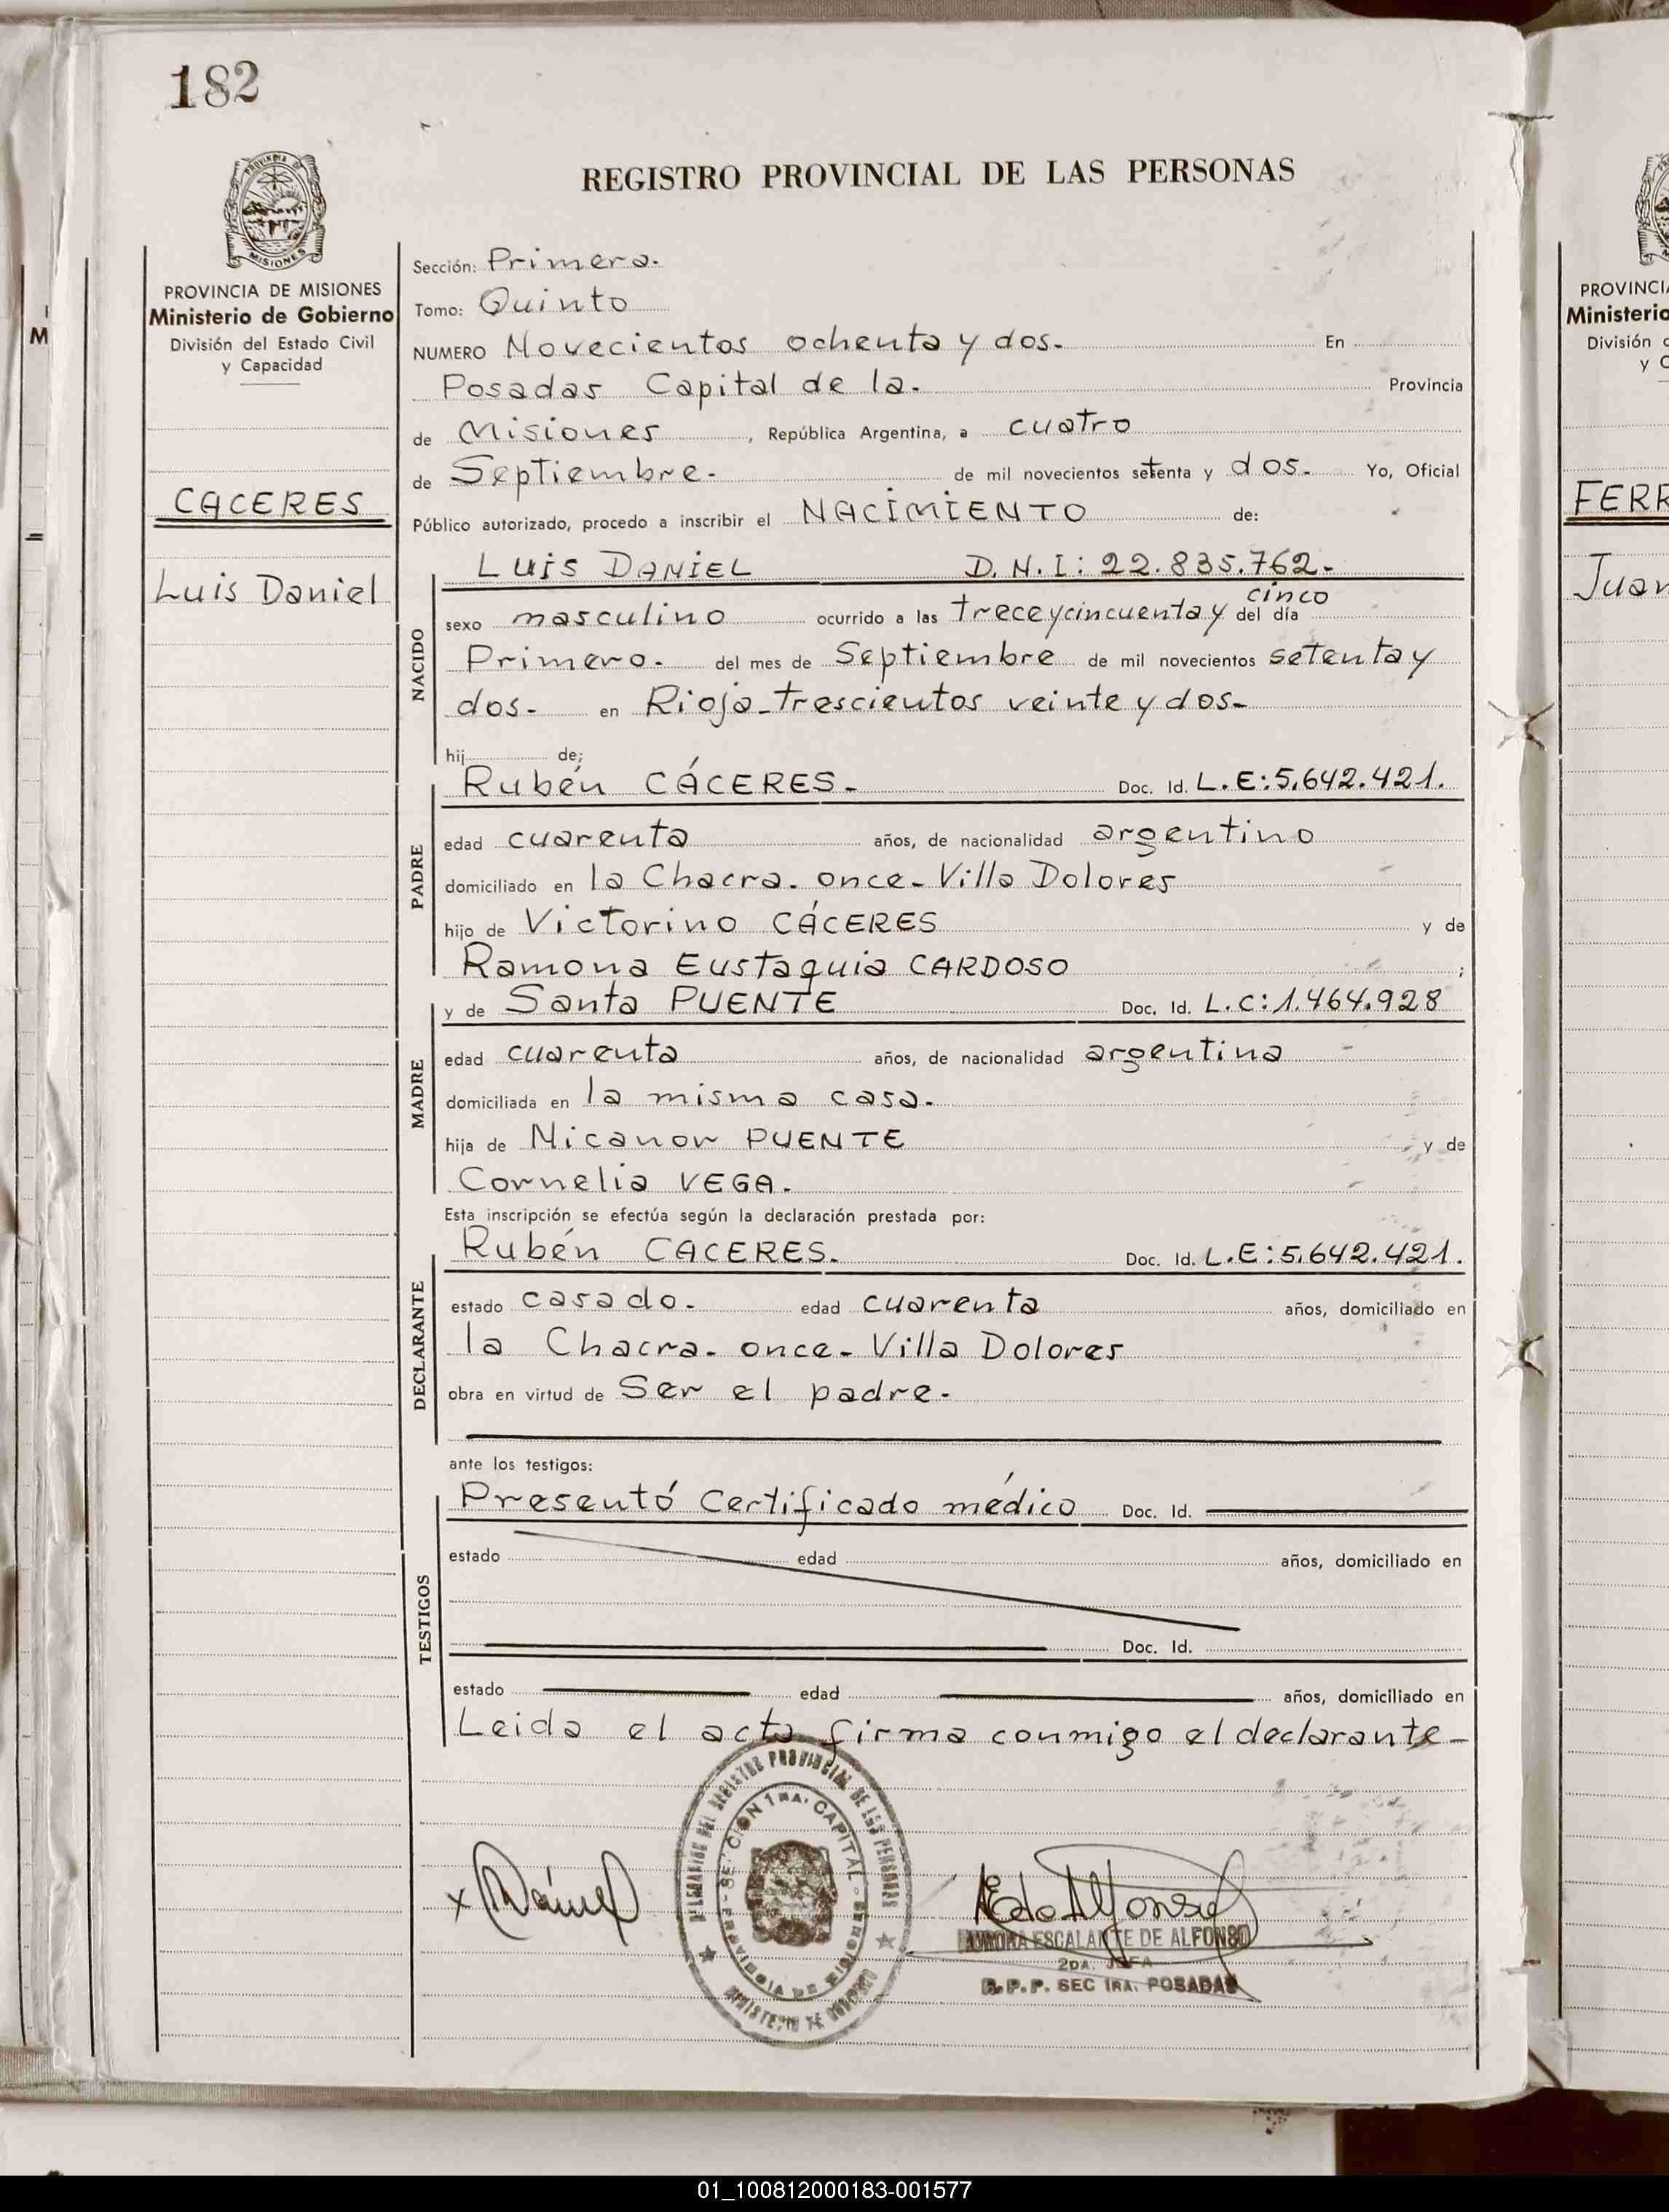 182
PROVINCIA DE
MISIONES
REGISTRO PROVINCIAL DE LAS PERSONAS
PROVINCIA DE MISIONES
Ministerio de Gobierno
División del Estado Civil
y Capacidad
CACERES
Luis Daniel
Sección: Primera.
Tomo: Quinto
NUMERO Novecientos ochenta y dos. En
Posadas Capital de la. Provincia
de Misiones, República Argentina, a cuatro
de Septiembre. de mil novecientos setenta y dos. Yo, Oficial
Público autorizado, procedo a inscribir el NACIMIENTO de:
NACIDO
LUIS DANIEL D.N.I: 22.835.762.-
cinco
sexo masculino ocurrido a las trece y cincuenta y del día
Primero. del mes de Septiembre de mil novecientos setenta y
dos.- en Rioja-trescientos veinte y dos-
hij de;
PADRE
Rubén CÁCERES.- Doc. Id. L.E:5.642.421.
edad cuarenta años, de nacionalidad argentino
domiciliado en la Chacra. once.- Villa Dolores
hijo de Victorino CÁCERES y de
Ramona Eustaquia CARDOSO ;
MADRE
y de Santa PUENTE Doc. Id. L.C:1.464.928
edad cuarenta años, de nacionalidad argentina
domiciliada en la misma casa.-
hija de Nicanor PUENTE y de
Cornelia VEGA.-
Esta inscripción se efectúa según la declaración prestada por:
DECLARANTE
Rubén CACERES. Doc. Id. L.E:5.642.421.
estado casado.- edad cuarenta años, domiciliado en
la Chacra. once.- Villa Dolores
obra en virtud de Ser el padre.-
ante los testigos:
TESTIGOS
Presentó Certificado médico Doc. Id.
estado edad años, domiciliado en
Doc. Id.
estado edad años, domiciliado en
Leida el acta firma conmigo el declarante-
DEL REGISTRO PROVINCIAL DE LAS PERSONAS
SECCION 1RA. CAPITAL
PROVINCIA DE MISIONES
MINISTERIO DE GOBIERNO
x
AURORA ESCALANTE DE ALFONSO
2DA. JEFA
R.P.P. SEC 1RA. POSADAS
M
PROVINCI
Ministerio
División
y C
FERR
Juan
01_100812000183-001577